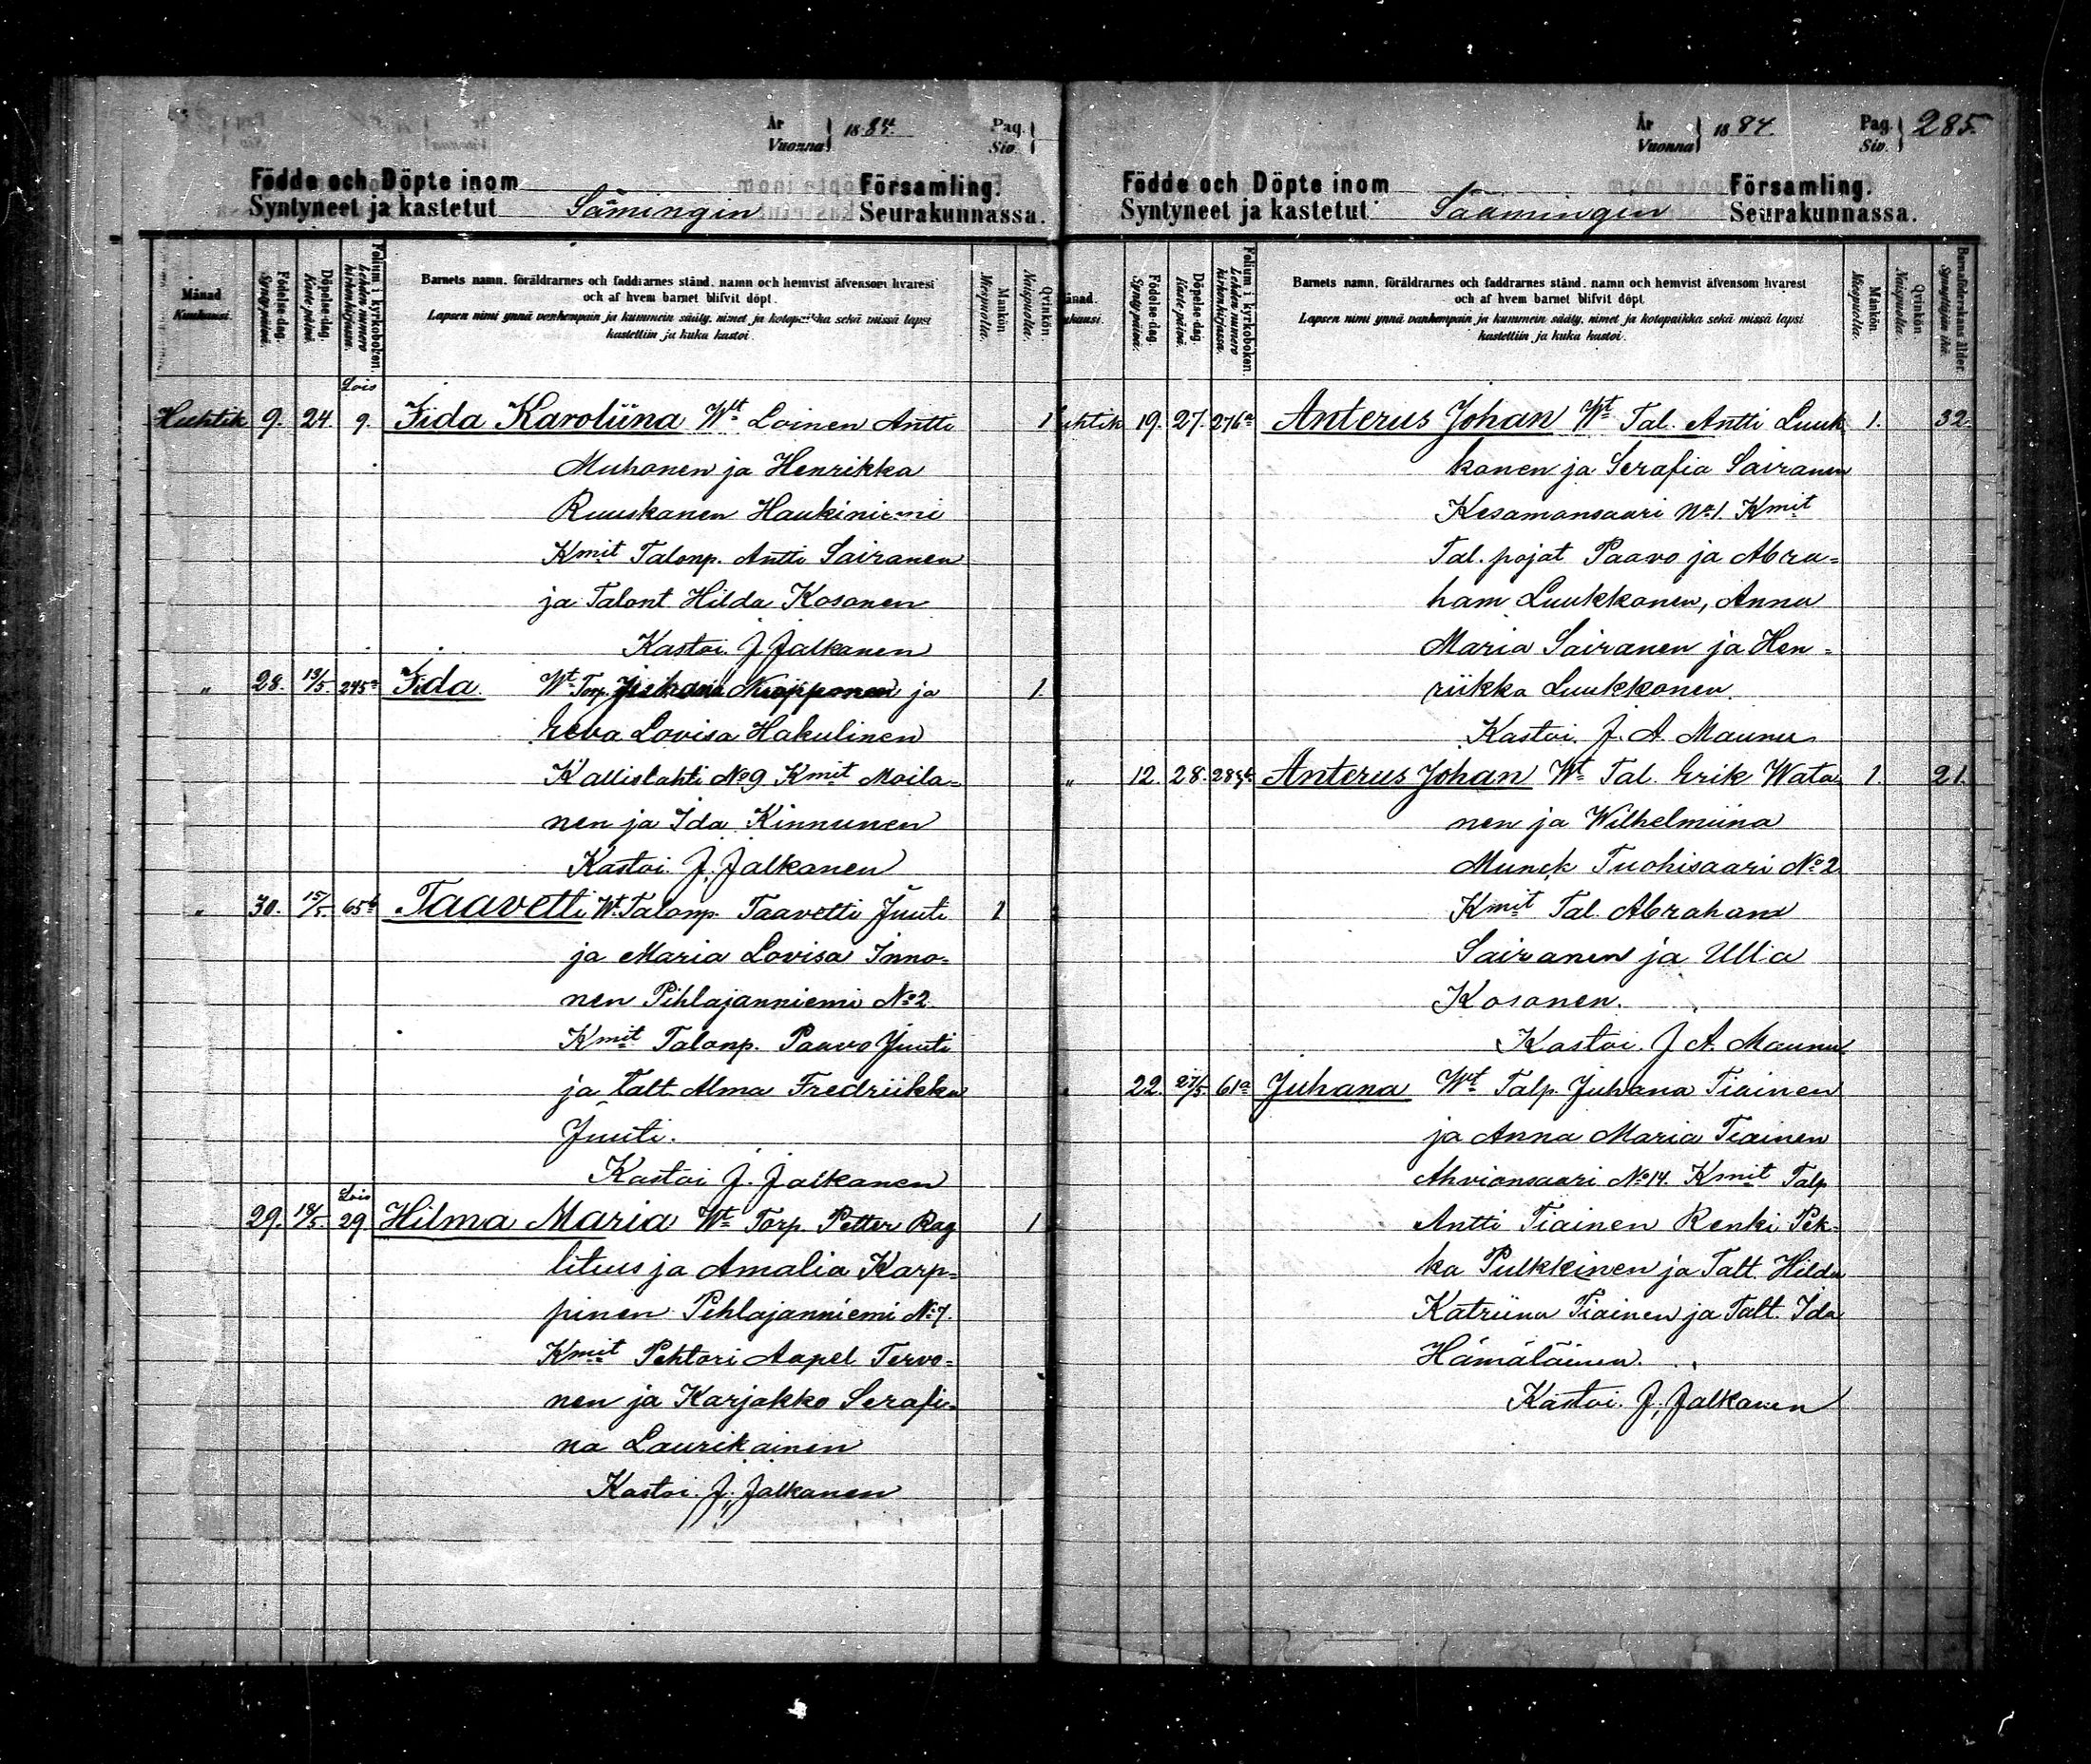 År
Vuonna } 1884.
Pag.
Siv. }
Födde och Döpte inom Församling.
Syntyneet ja kastetut Sämingin Seurakunnassa.
Månad.
Kuukausi.
Födelse-dag.
Syntymäpäivä.
Döpelse-dag.
Kaste-päivä.
Folium i kyrkoboken.
Lehden numero
kirkonkirjassa.
Barnets namn, föräldrarnes och faddrarnes stånd, namn och hemvist äfvensom hvarest
och af hvem barnet blifvit döpt.
Lapsen nimi ynnä vanhempain ja kummein sääty, nimet ja kotopaikka sekä missä lapsi
kastettiin ja kuka kastoi.
Mankön.
Miespuolta.
Qvinkön.
Naispuolta.
Lois
Huhtik 9. 24. 9. Iida Karoliina Wt Loinen Antti 1
Muhonen ja Henrikka
Ruuskanen Haukiniemi
Kmit Talonp. Antti Sairanen
ja Talont Hilda Kosonen
Kastoi J. Jalkanen
" 28. 13/5. 245a Iida. Wt Torp. Juhana Nuopponen ja 1.
Eeva Lovisa Hakulinen
Kallislahti No 9 Kmit Moila-
nen ja Ida Kinnunen
Kastoi. J. Jalkanen
" 30. 15/5. 65b Taavetti Wt Talonp. Taavetti Juuti 1
ja Maria Lovisa Inno-
nen Pihlajanniemi No 2.
Kmit Talonp. Paavo Juuti
ja talt. Alma Fredriikka
Juuti.
Kastoi J. Jalkanen
Lois
29. 18/5. 29. Hilma Maria Wt Torp. Petter Rag 1
lituus ja Amalia Karp-
pinen Pihlajanniemi No 7.
Kmit Pehtori Aapel Tervo-
nen ja Karjakko Serafii-
na Laurikainen
Kastoi. J. Jalkanen
År
Vuonna } 1884.
Pag.
Siv. } 285.
Födde och Döpte inom Församling.
Syntyneet ja kastetut Säämingin Seurakunnassa.
ånad.
ukausi.
Födelse-dag.
Syntymäpäivä.
Döpelse-dag.
Kaste-päivä.
Folium i kyrkoboken.
Lehden numero
kirkonkirjassa.
Barnets namn, föräldrarnes och faddrarnes stånd, namn och hemvist äfvensom hvarest
och af hvem barnet blifvit döpt.
Lapsen nimi ynnä vanhempain ja kummein sääty, nimet ja kotopaikka sekä missä lapsi
kastettiin ja kuka kastoi.
Mankön.
Miespuolta.
Qvinkön.
Naispuolta.
Barnaföderskans ålder.
Synnyttäjän ikä.
uhtik 19. 27. 276a Anterus Johan Wt Tal. Antti Luuk- 1. 32.
konen ja Serafia Sairanen
Kesamonsaari No 1. Kmit
Tal. pojat Paavo ja Abra-
ham Luukkonen, Anna
Maria Sairanen ja Hen-
riikka Luukkonen.
Kastoi. J. A. Maunu
" 12. 28. Anterus Johan Wt Tal. Erik Wata- 1. 21.
nen ja Wilhelmiina
Munck Tuohisaari No 2
Kmit Tal. Abraham
Sairanen ja Ulla
Kosonen.
Kastoi. J. A. Maunu.
22. 27/5. 61a Juhana Wt Talp. Juhana Tiainen
ja Anna Maria Tiainen
Ahvionsaari No 14. Kmit Talp
Antti Tiainen Renki Pek-
ka Pulkkinen ja Talt. Hilda
Katriina Tiainen ja Talt. Ida
Hämäläinen.
Kastoi. J. Jalkanen